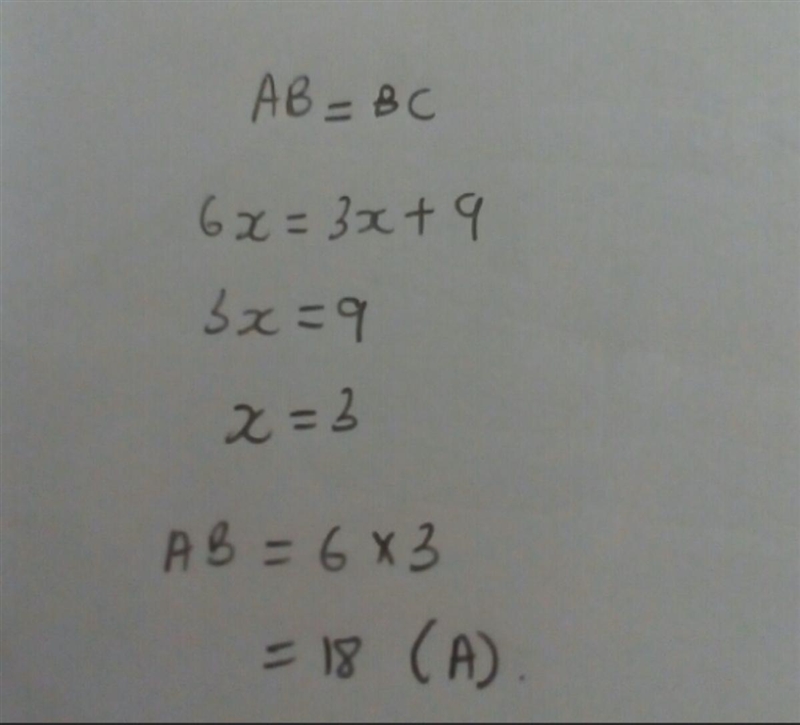 AB = BC
6x = 3x + 9
3x = 9
x = 3
AB = 6 × 3
= 18 (A).